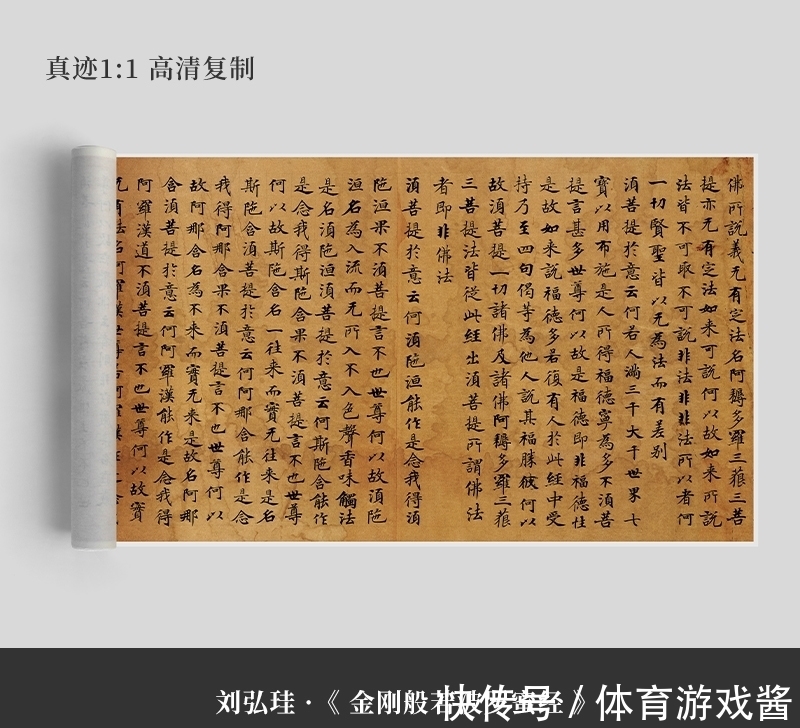 真迹1:1 高清复制
佛所說義无有定法名阿耨多羅三藐三菩
提亦无有定法如来可說何以故如来所說
法皆不可取不可說非法非非法所以者何
一切賢聖皆以无為法而有差别
湏菩提於意云何若人滿三千大千世界七
寶以用布施是人所得福德寧為多不湏菩
提言甚多世尊何以故是福德即非福德性
是故如来說福德多若復有人於此經中受
持乃至四句偈等為他人說其福勝彼何以
故湏菩提一切諸佛及諸佛阿耨多羅三藐
三菩提法皆從此經出湏菩提所謂佛法
者即非佛法
湏菩提於意云何湏陁洹能作是念我得湏
陁洹果不湏菩提言不也世尊何以故湏陁
洹名為入流而无所入不入色聲香味觸法
是名湏陁洹湏菩提於意云何斯陁含能作
是念我得斯陁含果不湏菩提言不也世尊
何以故斯陁含名一往来而實无往来是名
斯陁含湏菩提於意云何阿那含能作是念
我得阿那含果不湏菩提言不也世尊何以
故阿那含名為不来而實无来是故名阿那
含湏菩提於意云何阿羅漢能作是念我得
阿羅漢道不湏菩提言不也世尊何以故實
刘弘珪·《金刚般若
快传号/体育游戏酱